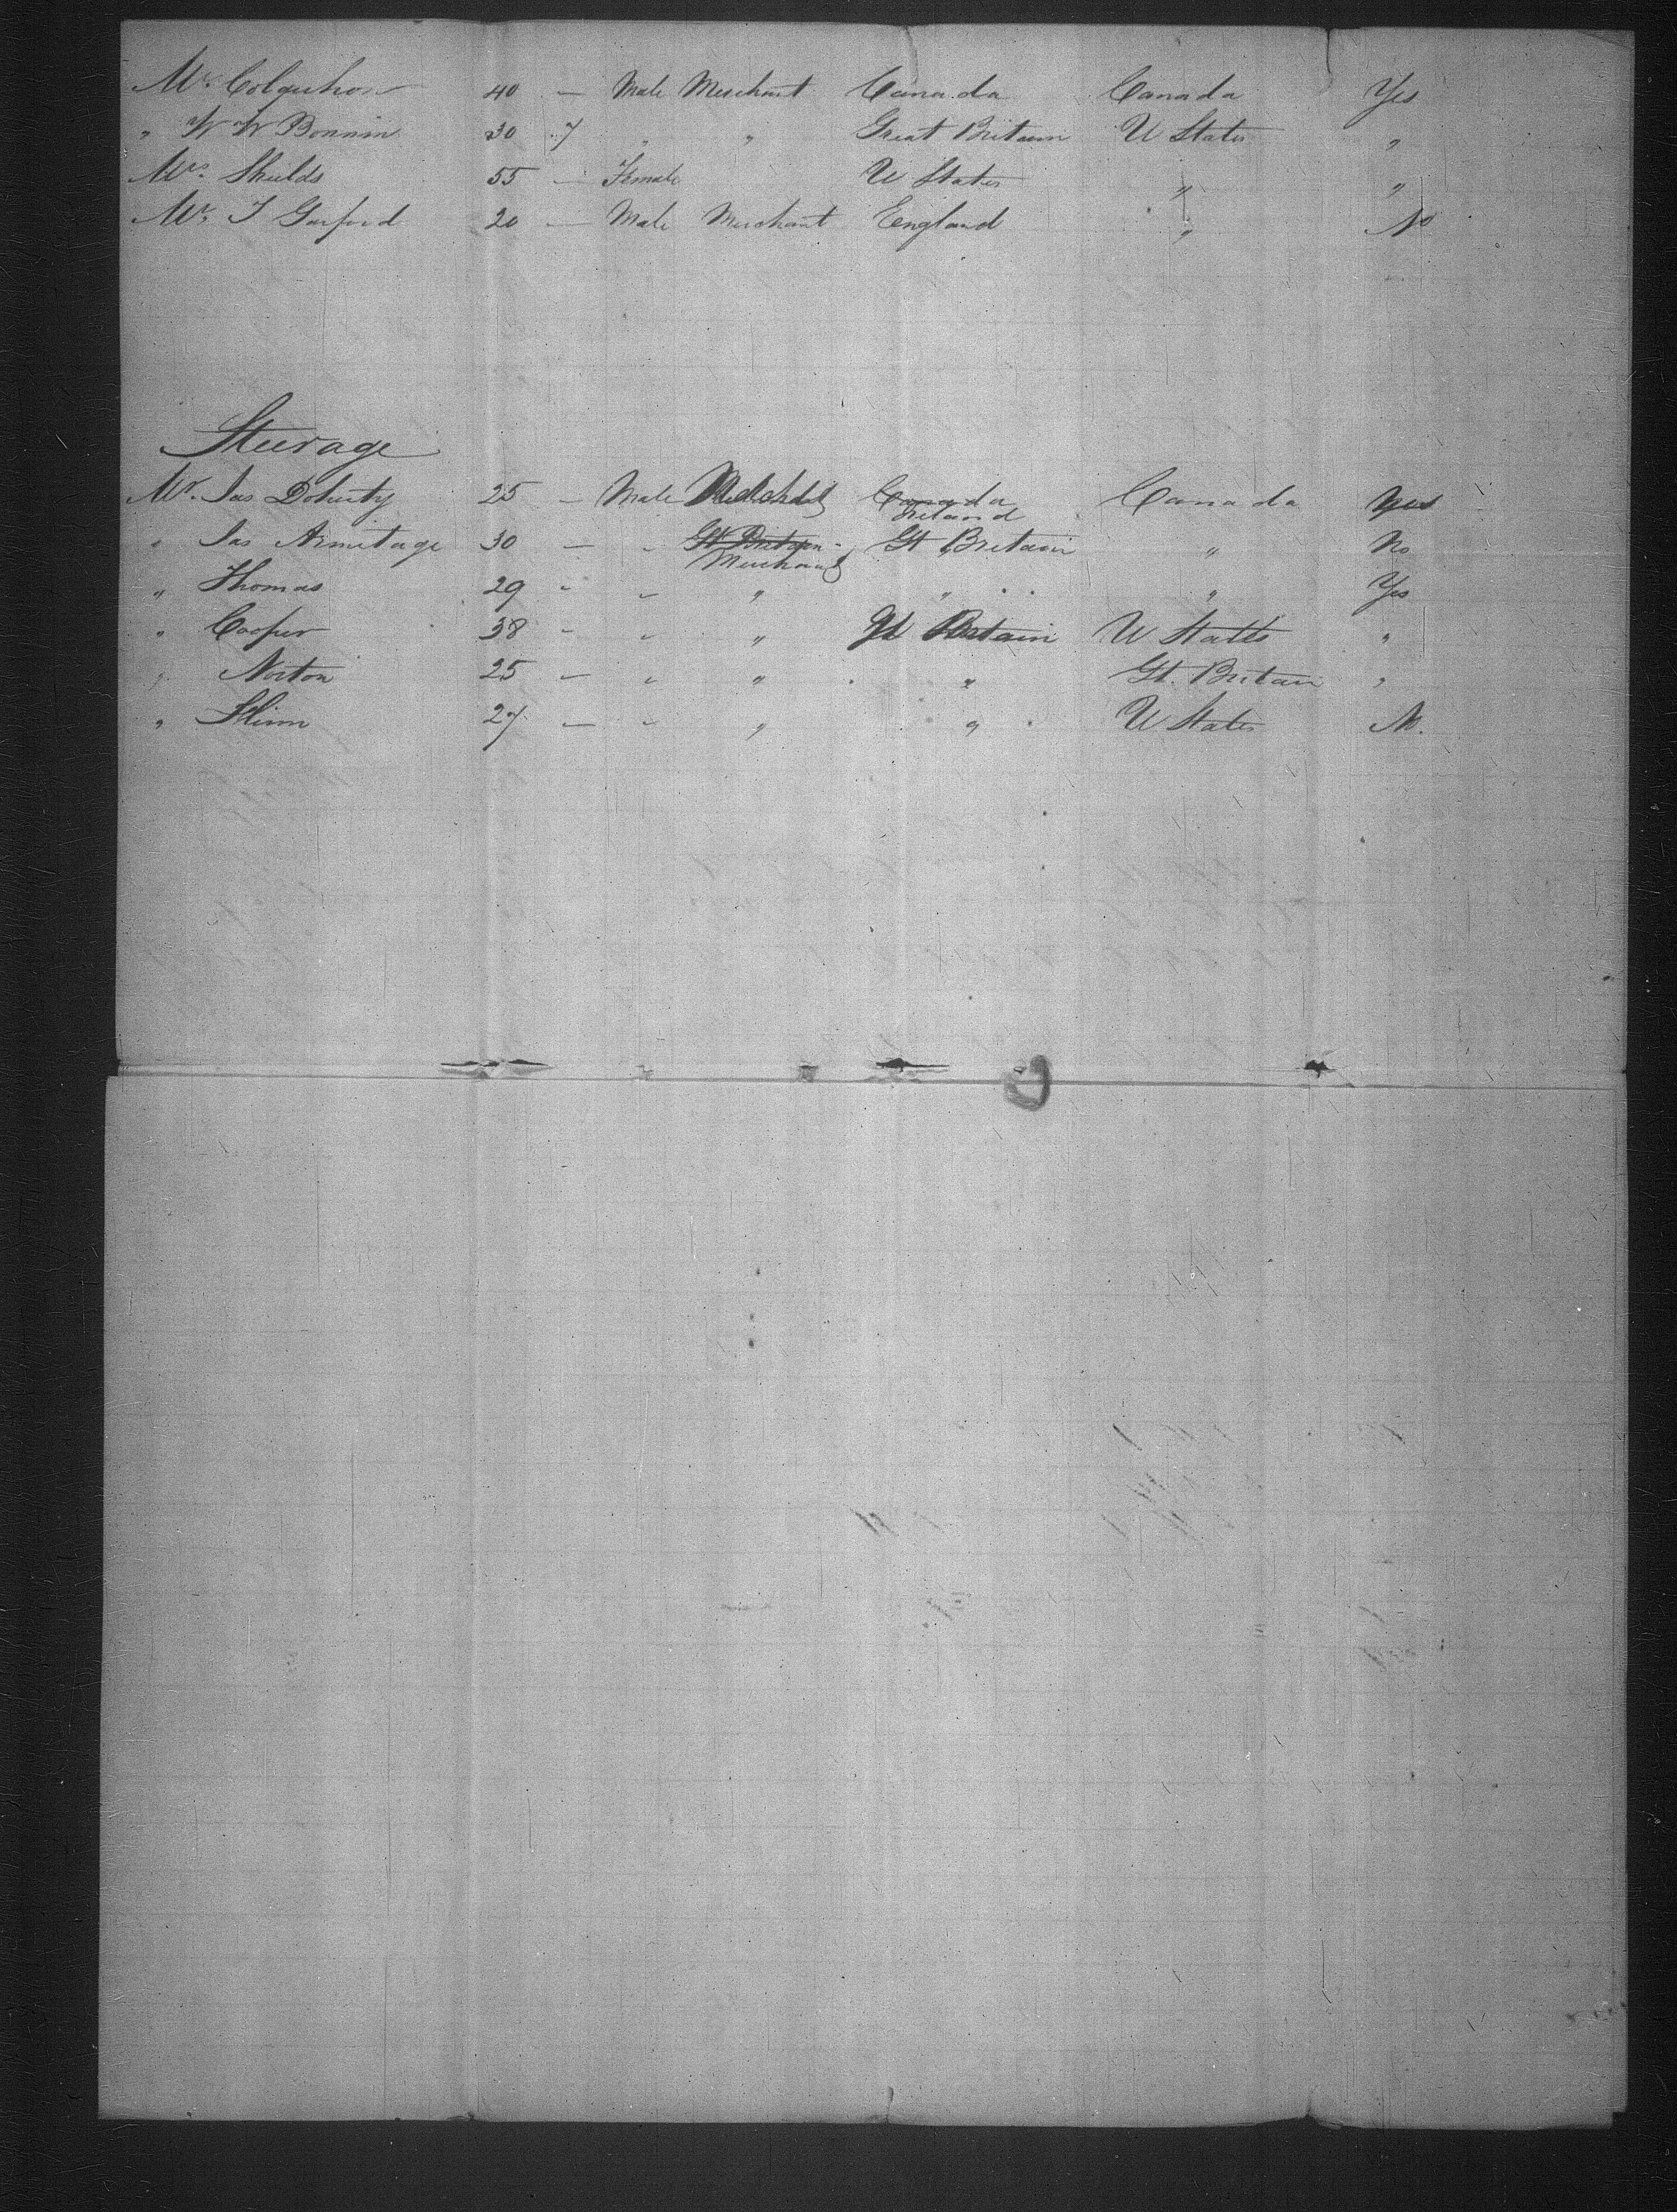 Mr. Colquhoun 40 — Male Merchant Canada Canada Yes
" W W Bonnin 30 7 " " Great Britain U States "
Mrs. Shields 55 — Female U States " "
Mr. T Garford 20 — Male Merchant England " No
Steerage
Mr. Jas Doherty 25 — Male Canada Canada yes
Ireland
" Jas Armitage 30 — " Gt Britain Gt Britain " No
Merchant
" Thomas 29 - " " " " Yes
" Cooper 38 - " " Gt Britain U States "
" Norton 25 — " " " Gt. Britain "
" 27 — " " " U States No.